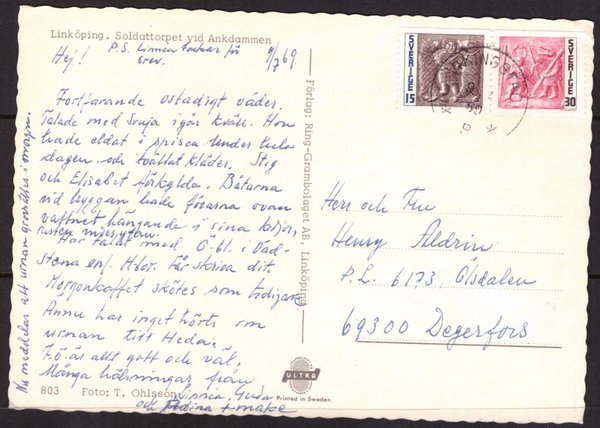 Linköping. Soldattorpet vid Ankdammen
P.S. Linnea tackar för
brev.
Hej! 9/7 69.
Fortfarande ostadigt väder.
Talade med Sonja igår kväll. Hon
hade eldat i spisen under hela
dagen och tvättat kläder. Stig
och Elisabet förkylda. Båtarna
vid bryggan hade förarna ovan
vattnet hängande i sina kätjor,
Har talat med Ö-bl. i Vad-
stena enl. Får skriva dit.
Morgonkaffet skötes som tidigare
Ännu har inget hörts om
urnan till Hedan.
F.ö. är allt gott och väl.
Många hälsningar från
Linnea, Gerda
och Edina + make
Nu meddelas att urnan gravsättes i morgon.
803 Foto: T. Ohlsson
Förlag: Ring-Grambolaget AB, Linköping
ULTRA
Printed in Sweden
SVERIGE 15
SVERIGE 30
Herr och Fru
Henry Aldrin
P.L. 6173, Ölsdalen
69300 Degerfors